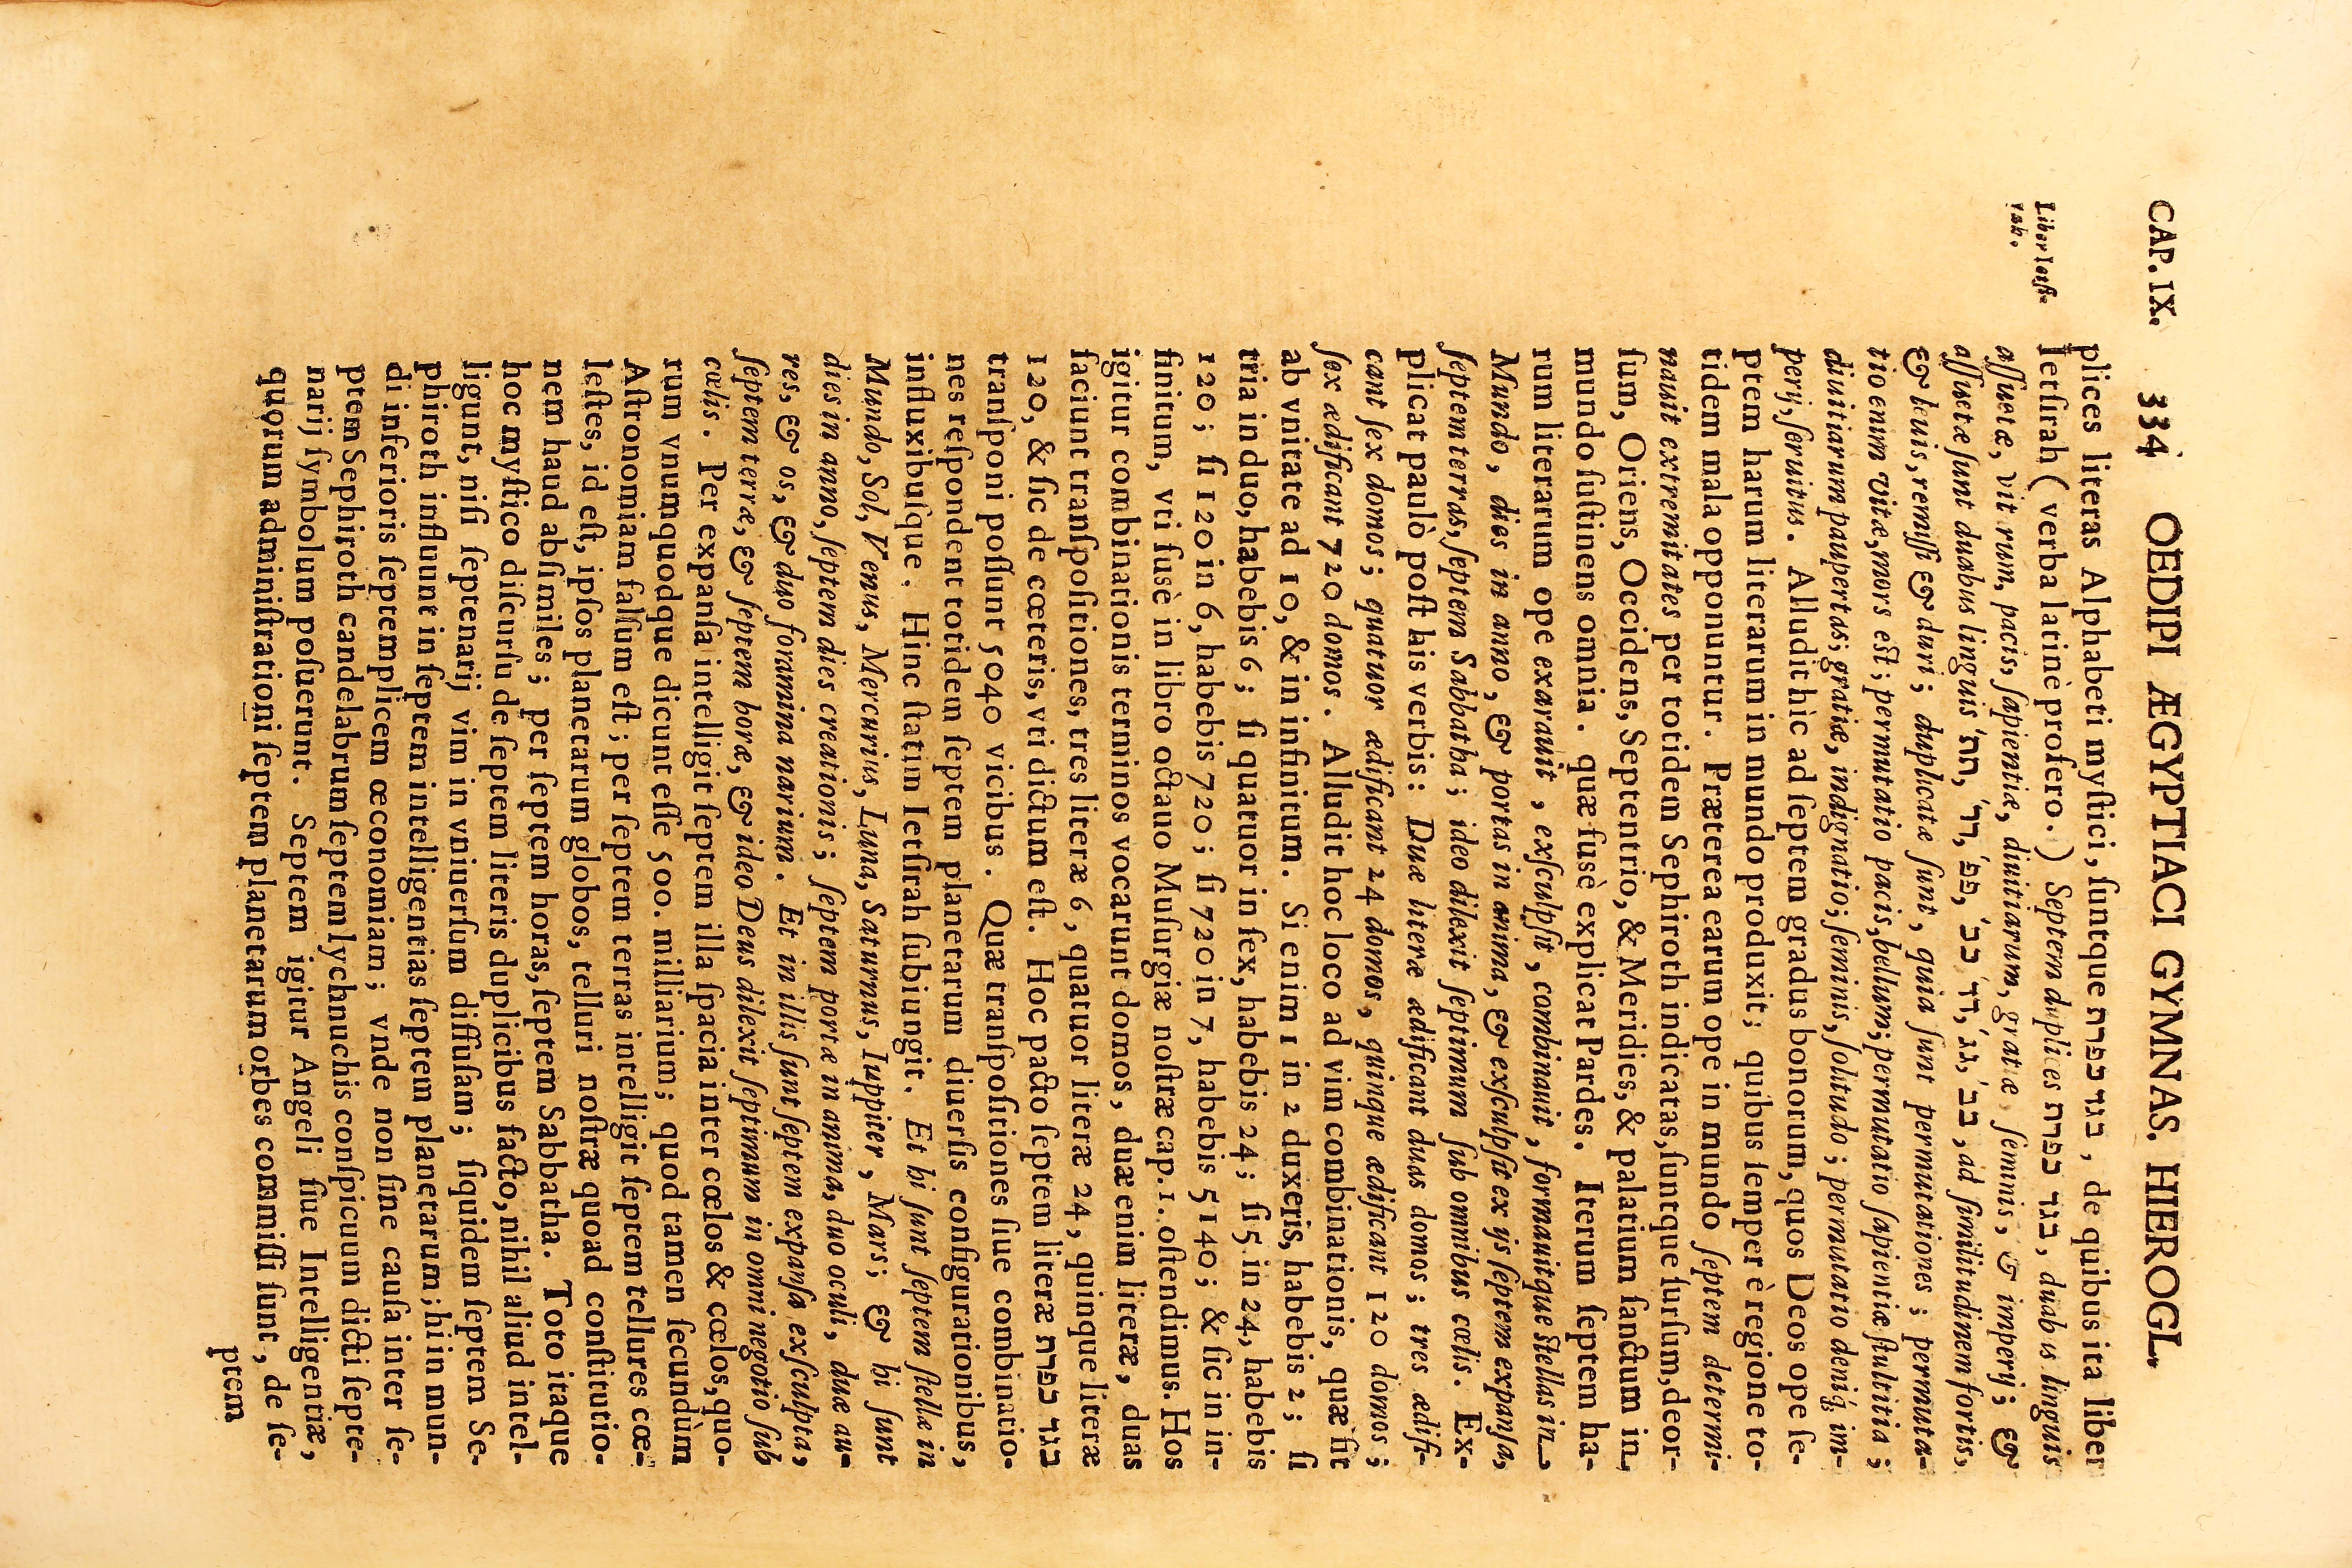 CAP. IX. 334 OEDIPI ÆGYPTIACI GYMNAS. HIEROGL.
plices literas Alphabeti myſtici, ſuntque בגד כפרת, de quibus ita liber
Liber Ietſi-
rah.
Ietſirah ( verba latinè profero. ) Septem duplices בגד כפרת, duabus linguis
aſſuetæ, vit rum, pacis, ſapientiæ, diuitiarum, gratiæ ſeminis, & imperij; &
aſſuetæ ſunt duabus linguis בב׳, גג׳, דד׳, ככ׳, פפ׳, רר׳, תת׳, ad ſimilitudinem fortis,
& leuis, remiſſi & duri; duplicatæ ſunt, quia ſunt permutationes; permuta-
tio enim vitæ, mors eſt; permutatio pacis, bellum; permutatio ſapientiæ ſtultitia;
diuitiarum paupertas; gratiæ, indignatio; ſeminis, ſolitudo; permutatio deniq́; im-
perij, ſeruitus. Alludit hìc ad ſeptem gradus bonorum, quos Deos ope ſe-
ptem harum literarum in mundo produxit; quibus ſemper è regione to-
tidem mala opponuntur. Præterea earum ope in mundo ſeptem determi-
nauit extremitates per totidem Sephiroth indicatas, ſuntque ſurſum, deor-
ſum, Oriens, Occidens, Septentrio, & Meridies, & palatium ſanctum in
mundo ſuſtinens omnia. quæ fusè explicat Pardes. Iterum ſeptem ha-
rum literarum ope exarauit, exſculpſit, combinauit, formauitque ſtellas in
Mundo, dies in anno, & portas in anima, & exſculpſit ex ijs ſeptem expanſa,
ſeptem terras, ſeptem Sabbatha; ideo dilexit ſeptimum ſub omnibus cœlis. Ex-
plicat paulò poſt his verbis: Duæ literæ ædificant duas domos; tres ædifi-
cant ſex domos; quatuor ædificant 24 domos, quinque ædificant 120 domos;
ſex ædificant 720 domos. Alludit hoc loco ad vim combinationis, quæ fit
ab vnitate ad 10, & in infinitum. Si enim 1 in 2 duxeris, habebis 2; ſi
tria in duo, habebis 6; ſi quatuor in ſex, habebis 24; ſi 5 in 24, habebis
120; ſi 120 in 6, habebis 720; ſi 720 in 7, habebis 5140; & ſic in in-
finitum, vti fusè in libro octauo Muſurgiæ noſtræ cap. 1. oſtendimus. Hos
igitur combinationis terminos vocarunt domos, duæ enim literæ, duas
faciunt tranſpoſitiones, tres literæ 6, quatuor literæ 24, quinque literæ
120, & ſic de cœteris, vti dictum eſt. Hoc pacto ſeptem literæ בגד כפרת
tranſponi poſſunt 5040 vicibus. Quæ tranſpoſitiones ſiue combinatio-
nes reſpondent totidem ſeptem planetarum diuerſis configurationibus,
influxibuſque. Hinc ſtatim Ietſirah ſubiungit. Et hi ſunt ſeptem ſtellæ in
Mundo, Sol, Venus, Mercurius, Luna, Saturnus, Iuppiter, Mars; & hi ſunt
dies in anno, ſeptem dies creationis; ſeptem portæ in anima, duo oculi, duæ au-
res, & os, & duo foramina narium. Et in illis ſunt ſeptem expanſa exſculpta,
ſeptem terræ, & ſeptem horæ, & ideo Deus dilexit ſeptimum in omni negotio ſub
cœlis. Per expanſa intelligit ſeptem illa ſpacia inter cœlos & cœlos, quo-
rum vnumquodque dicunt eſſe 500. milliarium; quod tamen ſecundùm
Aſtronomiam falſum eſt; per ſeptem terras intelligit ſeptem tellures cœ-
leſtes, id eſt, ipſos planetarum globos, telluri noſtræ quoad conſtitutio-
nem haud abſimiles; per ſeptem horas, ſeptem Sabbatha. Toto itaque
hoc myſtico diſcurſu de ſeptem literis duplicibus facto, nihil aliud intel-
ligunt, niſi ſeptenarij vim in vniuerſum diffuſam; ſiquidem ſeptem Se-
phiroth influunt in ſeptem intelligentias ſeptem planetarum; hi in mun-
di inferioris ſeptemplicem œconomiam; vnde non ſine cauſa inter ſe-
ptem Sephiroth candelabrum ſeptem lychnuchis conſpicuum dicti ſepte-
narij ſymbolum poſuerunt. Septem igitur Angeli ſiue Intelligentiæ,
quorum adminiſtrationi ſeptem planetarum orbes commiſſi ſunt, de ſe-
ptem